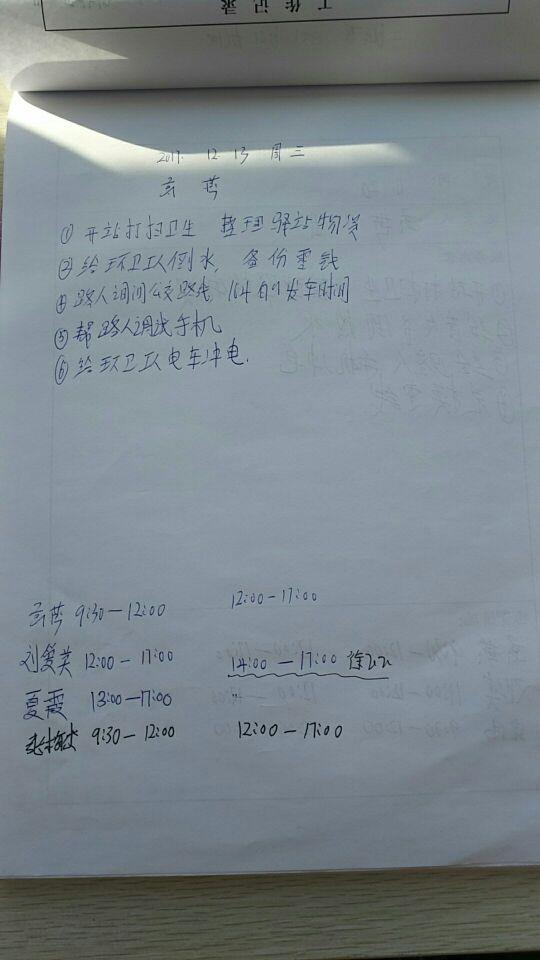 工作记录
2017. 12. 13 周三
① 开站打扫卫生 整理驿站物资
② 给环卫工人倒水, 备份零钱
④ 路人询问公交路线, 164的发车时间
⑤ 帮路人调试手机
⑥ 给环卫工人电车冲电.
9:30—12:00 12:00-17:00
刘爱英 12:00 - 17:00 14:00 — 17:00 徐
夏霞 13:00—17:00
9:30— 12:00 12:00 — 17:00